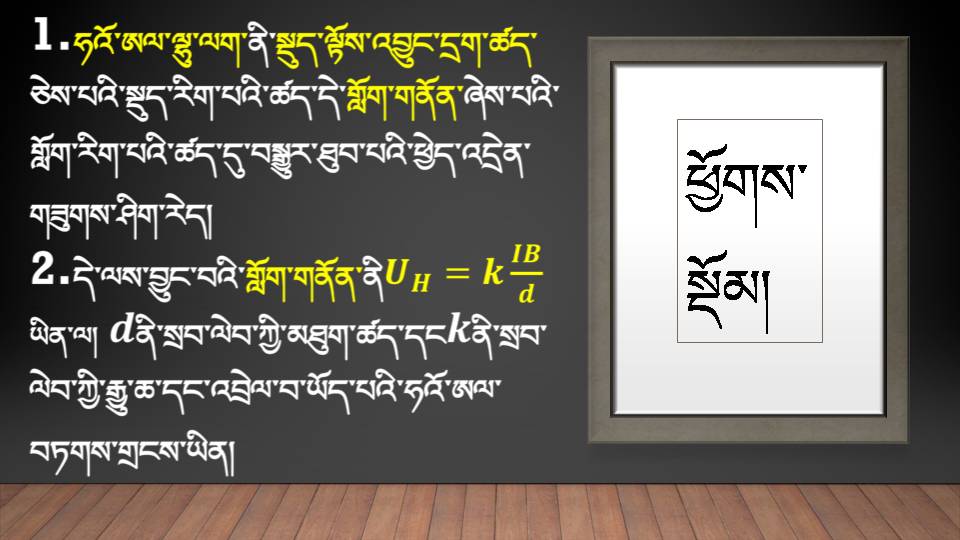 1.ཧའོ་ཨལ་ལྷུ་ལག་ནི་སྡུད་ལྟོས་འབྱུང་དྲག་ཚད་
ཅེས་པའི་སྡུད་རིག་པའི་ཚད་དེ་གློག་གནོན་ཞེས་པའི་
གློག་རིག་པའི་ཚད་དུ་བསྒྱུར་ཐུབ་པའི་ཕྱེད་འདྲེན་
གཟུགས་ཤིག་རེད།
2.དེ་ལས་བྱུང་བའི་གློག་གནོན་ནི U_H = k IB/d
ཡིན་ལ། dནི་སྲབ་ལེབ་ཀྱི་མཐུག་ཚད་དང kནི་སྲབ་
ལེབ་ཀྱི་རྒྱུ་ཆ་དང་འབྲེལ་བ་ཡོད་པའི་ཧའོ་ཨལ་
བཏགས་གྲངས་ཡིན།
ཕྱོགས་
སྡོམ།